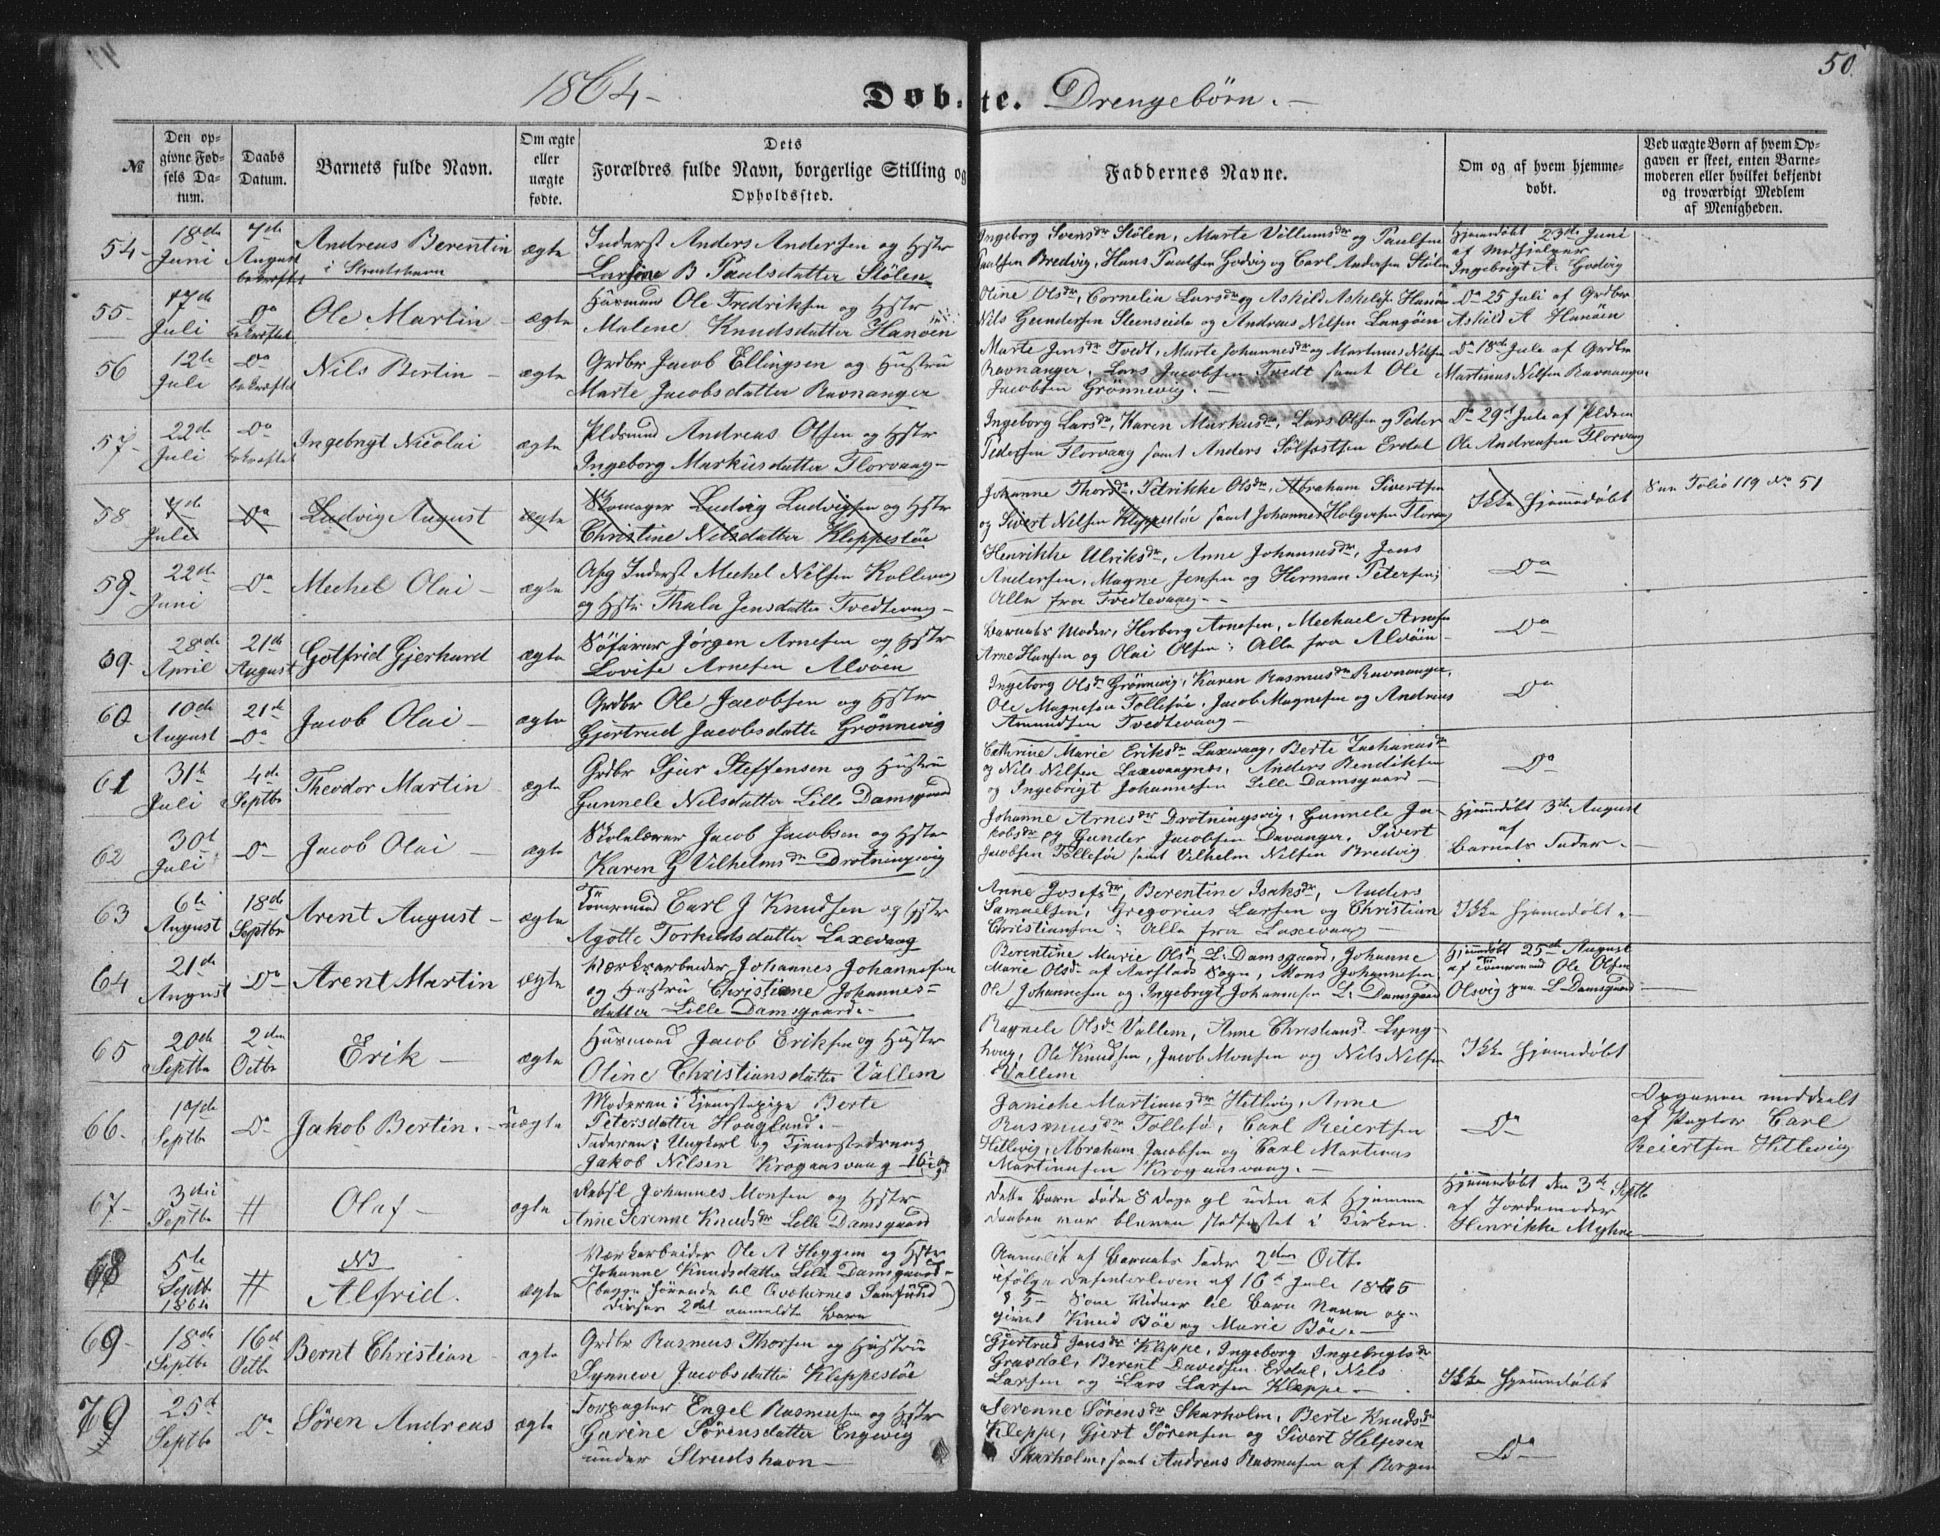 50.
1864 - Døbte. Drengebørn. -
№ | Den opgivne Fødsels Datum. | Daabs Datum. | Barnets fulde Navn. | Om ægte eller uægte fødte. | Dets Forældres fulde Navn, borgerlige Stilling og Opholdssted. | Faddernes Navne. | Om og af hvem hjemmedøbt. | Ved uægte Børn af hvem Opgaven er skeet, enten Barnemoderen eller hvilket bekjendt og troværdigt Medlem af Menigheden.
54 - 18de Juni | 7de August bekræftet | Andreas Berentin i Strudshavn | ægte | Inderst Anders Andersen og Hstr
Larsine B Paulsdatter Stølen
Ingeborg Svensdr Stølen, Marte Villumsdr og Paulsen
Paulsen Bredvig, Hans Paulsen Godvig og Carl Andersen Stølen
Hjemmedøbt 23de Juni
Ingebrigt A. Godvig
55 - 17de Juli | Do bekræftet | Ole Martin - | ægte | Huusmand Ole Fredriksen og Hstr
Malene Knudsdatter Hanøen
Oline Olsdr, Cornelia Larsdr og Askild Askilds. Hanøen
Nils Gundersen Steenseide og Andreas Nilsen Langøen
Do 25 Juli af Grdbr
Askild A Hanøen
56 | 12te Juli | Do bekræftet | Nils Bertin - | ægte | Grdbr Jacob Ellingsen og Hustru
Marte Jacobsdatter Ravnanger
Marte Jensdr Tvedt, Marte Johannesdr og Martinus Nilsen
Ravnanger, Lars Jacobsen Tvedt samt Ole
Jacobsen Grønnevig. -
Do 18de Jule af Grdbr
Martinus Nilsen Ravnanger
57 - 22de Juli | Do bekræftet | Ingebrigt Nicolai | ægte | Pldsmand Andreas Olsen og Hstr
Ingeborg Markusdatter Florvaag -
Ingeborg Larsdr, Karen Markusdr, Lars Olsen og Peder
Pedersen Florvaag samt Anders Solfastsen Erdal
Do 29de Jule af Pldsm
Ole Andreasen Florvaag
58 | 7de Juli | Do | Ludvig August | ægte | Skomager Ludvig Ludvigsen og Hstr
Christine Nilsdatter Kleppestøe
Johanne Thorsdr, Petrikke Olsdr, Abraham Sivertsen
og Sivert Nilsen Kleppestøe samt Johannes Holgersen Florvaag
Ikke Hjemmedøbt | See Folio 119 No 51
59 - 22de Juni | Do | Mechel Olai - | ægte | Afsg Inderst Mechel Nilsen Kollevaag
og Hstr Thala Jensdatter Tvedtevaag -
Henrikke Ulriksdr, Anne Johannesdr, Jens
Andersen, Magne Jensen og Herman Petersen;
Alle fra Tvedtevaag - | Do
59 - 28de April | 21de August | Gotfrid Gjerhard | ægte | Søfarer Jørgen Arnesen og Hstr
Lovise Arnesen Alvøen
Barnets Moder, Herborg Arnesen, Mechael Arnesen
Arne Hansen og Olai Olsen; Alle fra Alvøen - | Do
60 | 10de August | 21de Do | Jacob Olai - | ægte | Grdbr Ole Jacobsen og Hstr
Gjertrud Jacobsdatter Grønnevig
Ingeborg Olsdr Grønnevig, Karen Rasmusdr Ravnanger,
Ole Magnesen Follesøe, Jacob Magnesen og Andreas
Amundsen Tvedtevaag - | Do
61 | 31te Juli | 4de Septbr | Theodor Martin - | ægte | Grdbr Sjur Steffensen og Hustru
Gunnele Nilsdatter Lille Damsgaard
Cathrine Marie Eriksdr Laxevaag, Berte Zachariasdr
og Nils Nilsen Laxevaagnes, Anders Bendiktsen
og Ingebrigt Johannesen Lille Damsgaard - | Do
62 | 30te Juli | Do | Jacob Olai - | ægte | Skolelærer Jacob Jacobsen og Hstr
Karen G Vilhelmsdr Drotningsvig
Johanne Arnesdr Drotningsvig, Gunnele Jakobsdr og Gunder Jacobsen Davanger, Sivert
Jacobsen Follesøe samt Vilhelm Nilsen Bredvig
Hjemmedøbt 3de August
af
Barnets Fader. -
63 | 6te August | 18de Septbr | Arent August - | ægte | Tømmermand Carl J Knudsen og Hstr
Agotte Torkildsdatter Laxevaag
Anne Josefsdr, Berentine Isaksdr, Anders
Samuelsen, Gregorius Larsen og Christian
Christiansen; Alle fra Laxevaag -
Ikke Hjemmedøbt. -
64 | 21de August | Do | Arent Martin | ægte | Værksarbeider Johannes Johannesen
og Hustru Christiane Johannes-
datter Lille Damsgaard. -
Berentine Marie Olsdr L. Damsgaard, Johanne
Marie Olsdr af Aarstads Sogn, Mons Johannesen,
Ole Johannesen og Ingebrigt Johannesen L. Damsgaard
Hjemmedøbt 25de August
af Tømmermand Ole Olsen
Olsvig paa L Damsgaard
65 | 20de Septbr | 2den Octbr | Erik - | ægte | Huusmand Jacob Eriksen og Hustr
Oline Christiansdatter Vallem
Ragnele Olsdr Vallem, Anne Christiansd. Lyng-
houg, Ole Knudsen, Jacob Monsen og Nils Nilsen
Vallem
Ikke Hjemmedøbt
66. | 17de Septbr | Do | Jakob Bertin. - | uægte | Moderen: Tjenestepige Berte
Petersdatter Hoaglund. -
Faderen: Ungkarl og Tjenestedreng
Jakob Nilsen Krogaasvaag
Janiche Martinusdr Hetlevig, Anne
Rasmusdr Follesø, Carl Reiertsen
Hetlevig, Abraham Jacobsen og Carl Martinus
Martinusen Krogaasvaag. -
Do | Opgaven meddelt
af Carl
Reiertsen Hetlevig
67 - 3die Septbr | # | Olaf - | ægte | Rebsl Johannes Monsen og Hstr
Anne Serenne Knudsdr Lille Damsgaard
Dette Barn døde 8 Dage gl uden at Hjemme
daaben var bleven stadfæstet i Kirken.
Hjemmedøbt den 3de Septbr
af Jordemoder
Henrikke Myhre
68 | 5te Septbr 1864 | # | NB
Alfrid. | ægte | Værkarbeider Ole A Heggem og Hstr
Johanne Knudsdatter Lille Damsgaard -
(begge hørende til Qvækernes Samfund)
Disses 2det anmeldte Barn
Anmeldt af Barnets Fader 2den Octbr
ifølge Dissenterloven af 16de Juli 1845
§ 5 - Som Vidner til Barnets Navn op-
givet Knud Bøe og Marie Bøe. -
69 - 18de Septbr | 16de Octbr | Bernt Christian - | ægte | Grdbr Rasmus Thorsen og Hustru
Synneve Jacobsdatter Kleppestøe
Gjertrud Jonsdr Kleppe, Ingeborg Ingebrigtsdr
Gravdal, Berent Davidsen Erdal, Nils
Larsen og Lars Larsen Kleppe -
Ikke Hjemmedøbt
70 | 25de Septbr | Do | Søren Andreas | ægte | Engel Rasmusen og Hstr
Gurine Sørensdatter Engevig
under Strudshavn -
Serenne Sørensdr Skarholm, Berte Knudsdr
Kleppe, Gjert Sørensen og Sivert Helgesen
Skarholm, samt Andreas Rasmusen af Bergen
Do -